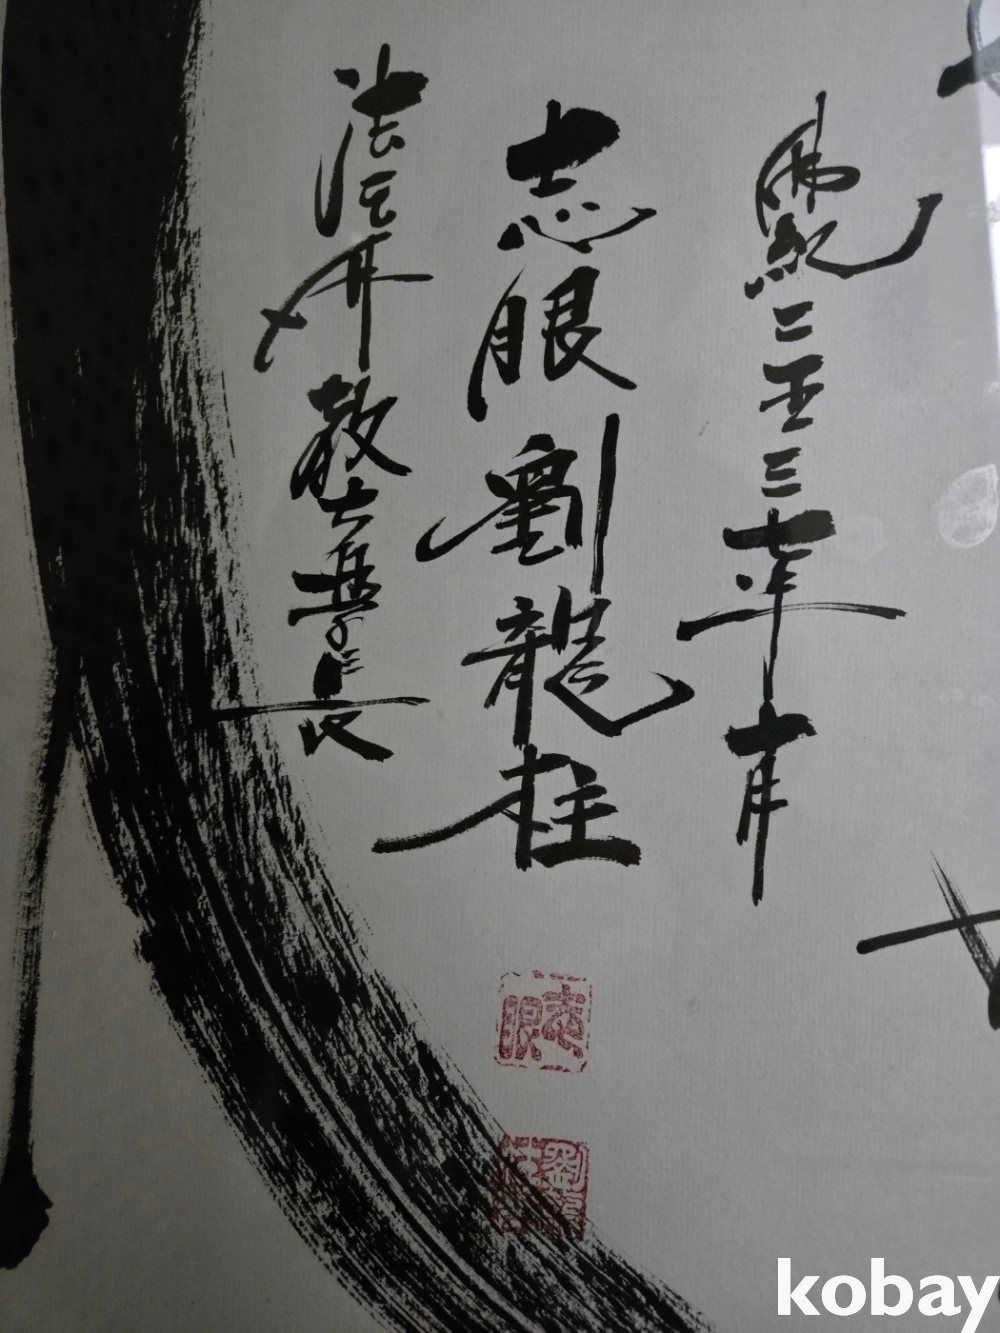 佛紀二五三七年十月
志眼劉龍柱
法 教大學長
志眼
劉龍柱
kobay